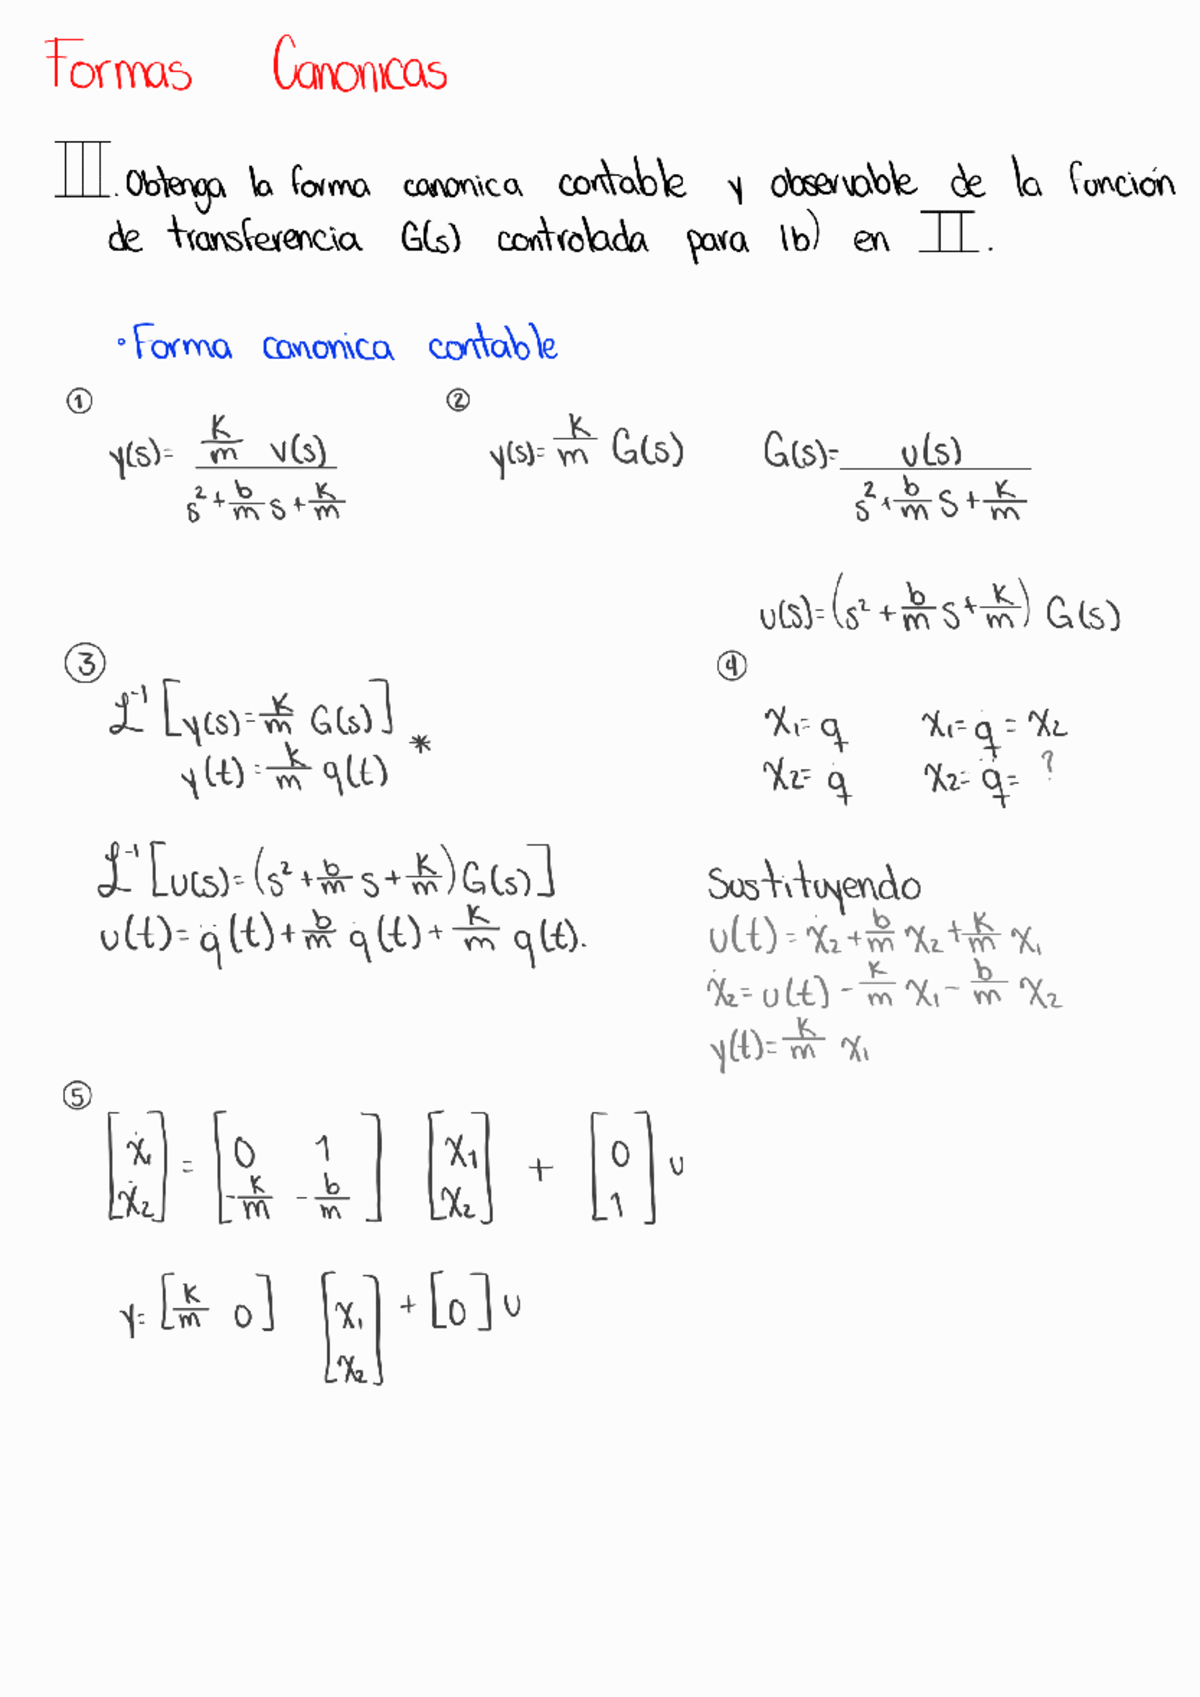 Formas Canonicas
III. Obtenga la forma canonica contable y observable de la función
de transferencia G(s) controlada para 1b) en II.
• Forma canonica contable
① y(s)= k/m v(s) / s²+b/m s+k/m
② y(s)= k/m G(s) G(s)= u(s) / s²+b/m s+k/m
u(s)=(s²+b/m s+k/m) G(s)
③
ℒ⁻¹[y(s)=k/m G(s)] *
y(t)=k/m q(t)
ℒ⁻¹[u(s)=(s²+b/m s+k/m)G(s)]
u(t)=q̈(t)+b/m q̇(t)+k/m q(t).
④
x₁=q ẋ₁=q̇=x₂
x₂=q̇ ẋ₂=q̈=?
Sustituyendo
u(t)=ẋ₂+b/m x₂+k/m x₁
ẋ₂=u(t)-k/m x₁-b/m x₂
y(t)=k/m x₁
⑤
[ẋ₁ ẋ₂] = [0 1 -k/m -b/m] [x₁ x₂] + [0 1] u
y=[k/m 0] [x₁ x₂] + [0] u